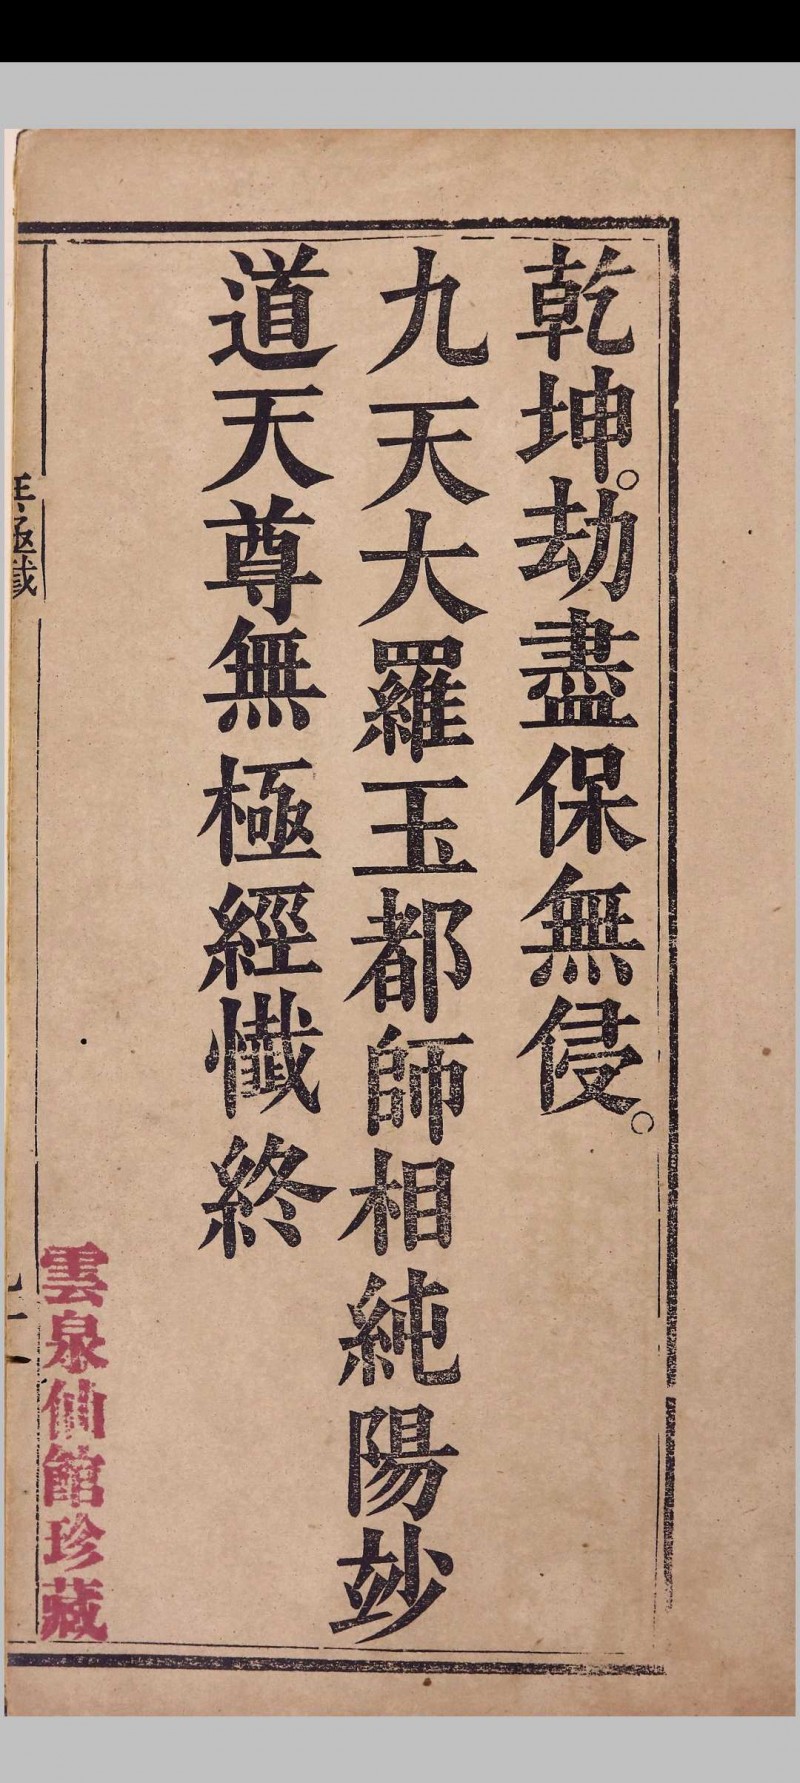 乾坤。劫盡保無侵。
九天大羅玉都師相純陽玅
道天尊無極經懺終
雲泉仙館珍藏